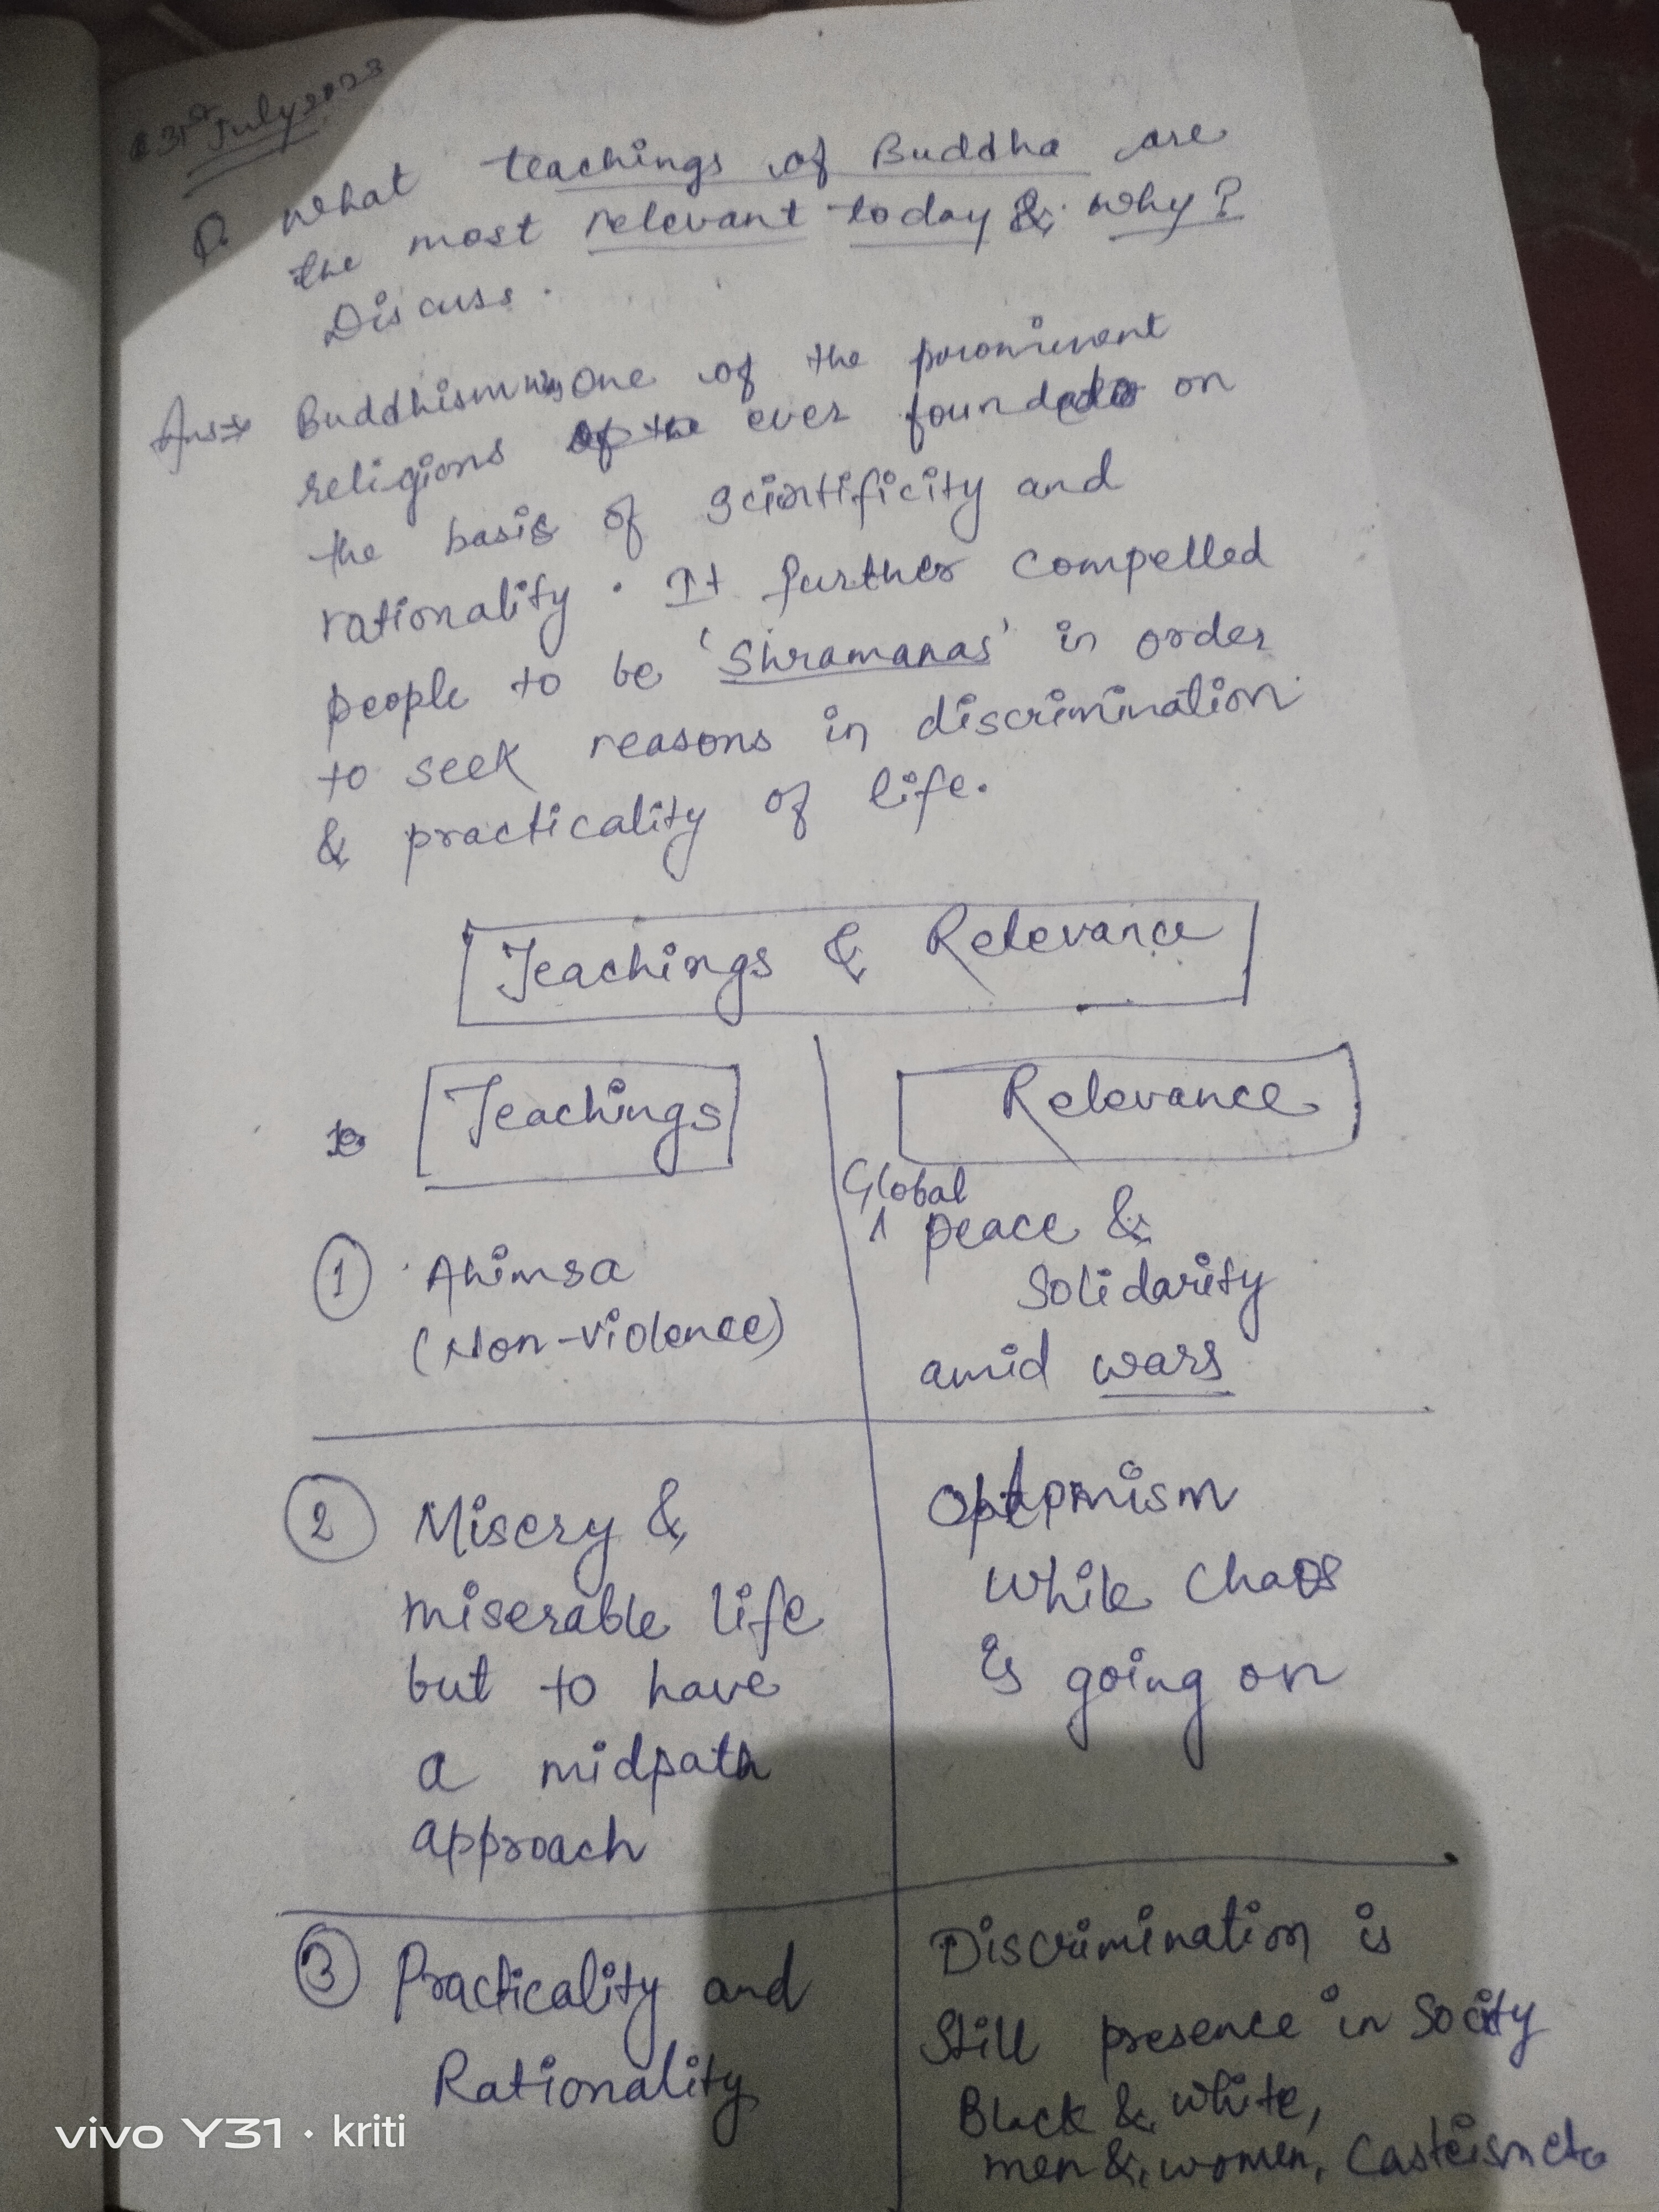 31st July 2023
Q. What teachings of Buddha are
the most relevant today & why?
Discuss.
Ans⇒ Buddhism was one of the prominent
religions of the ever founded on
the basis of scientificity and
rationality. It further compelled
people to be 'Shramanas' in order
to seek reasons in discrimination
& practicality of life.
Teachings & Relevance
Teachings
Relevance
① Ahimsa
(Non-violence)
Global
peace &
Solidarity
amid wars
② Misery &
miserable life
but to have
a midpath
approach
Optimism
while chaos
is going on
③ Practicality and
Rationality
Discrimination is
still presence in Society
Black & white,
men & women, Casteism etc
vivo Y31 · kriti